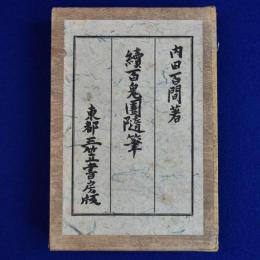 内田百閒著
續百鬼園隨筆
東都三笠書房版